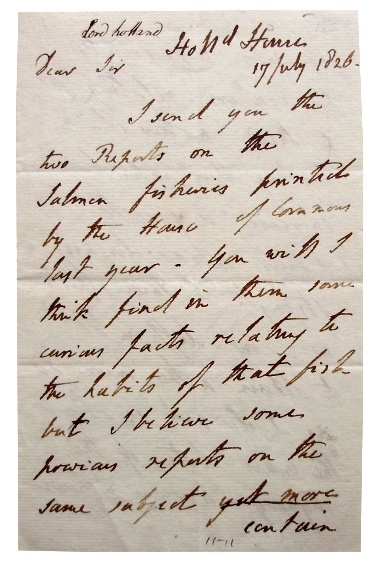 Lord Holland
Holld House
17 July 1826.
Dear Sir
I send you the
two Reports on the
Salmon fisheries printed
by the House of Commons
last year - You will I
think find in them some
curious facts relating to
the habits of that fish
but I believe some
previous reports on the
same subject yet more
contain